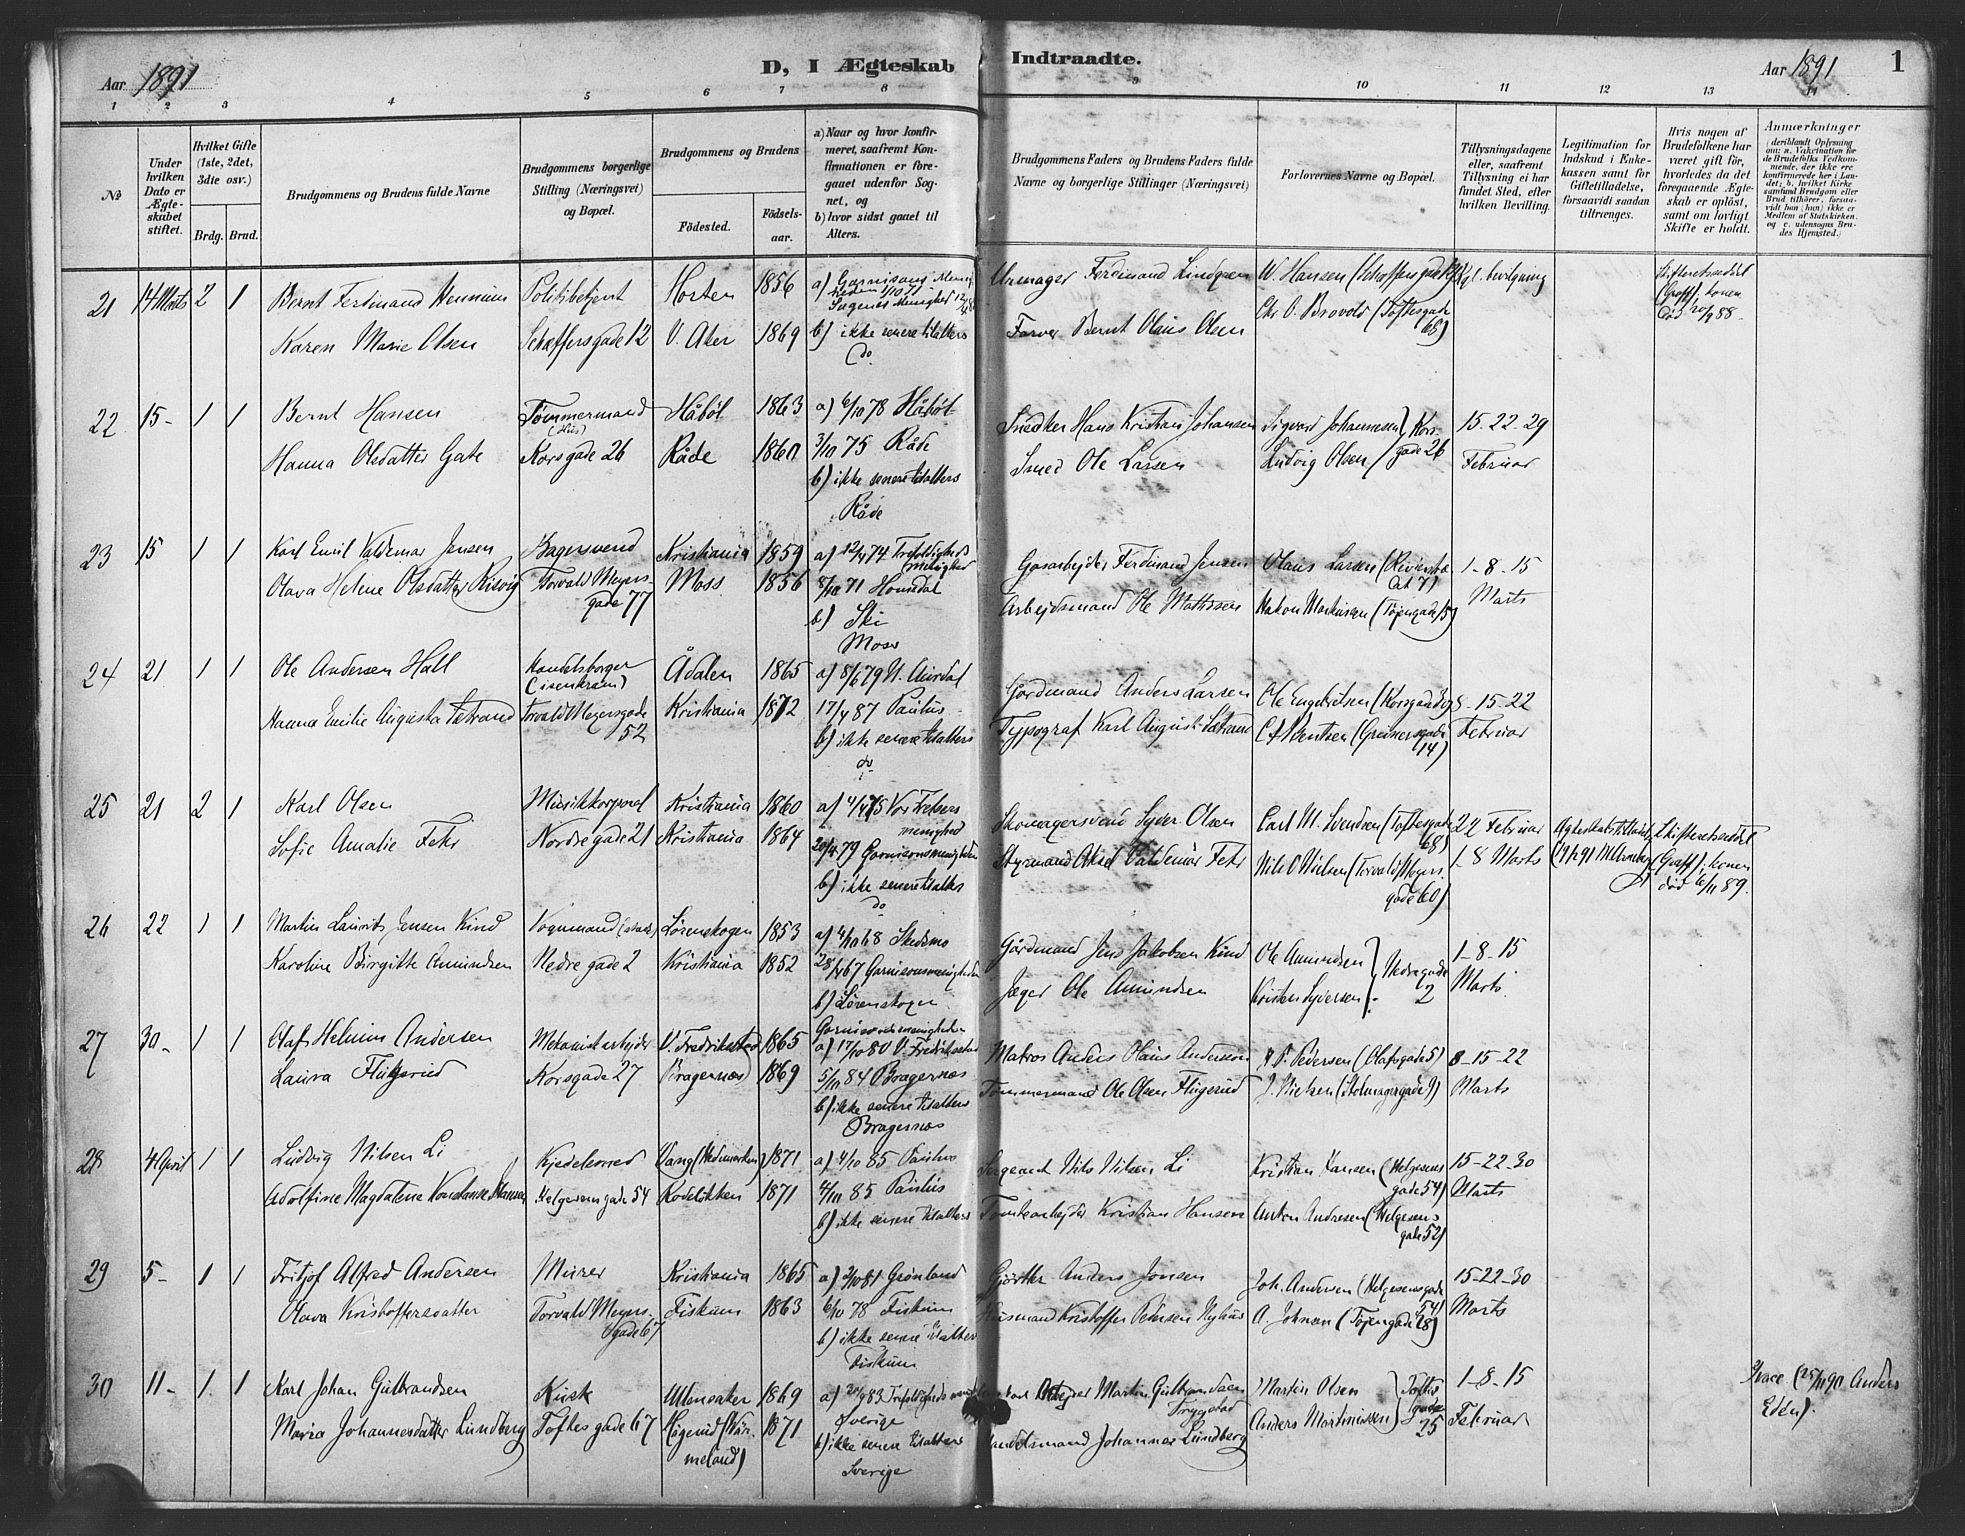 Aar 1891
D, I Ægteskab Indtraadte.
Aar 1891
1
1 2 3 4 5 6 7 8 9 10 11 12 13 14
№
Under hvilken Dato er Ægteskabet stiftet.
Hvilket Gifte (1ste, 2det, 3die osv.)
Brdg. Brud.
Brudgommens og Brudens fulde Navne
Brudgommens borgerlige Stilling (Næringsvei) og Bopæl.
Brudgommens og Brudens
Fødested.
Fødselsaar.
a) Naar og hvor konfirmeret, saafremt Konfirmationen er foregaaet udenfor Sognet, og
b) hvor sidst gaaet til Alters.
Brudgommens Faders og Brudens Faders fulde Navne og borgerlige Stillinger (Næringsvei)
Forlovernes Navne og Bopæl.
Tillysningsdagene eller, saafremt Tillysning ei har fundet Sted, efter hvilken Bevilling.
Legitimation for Indskud i Enkekassen samt for Giftetilladelse, forsaavidt saadan tiltrænges.
Hvis nogen af Brudefolkene har været gift før, hvorledes da det foregaaende Ægteskab er opløst, samt om lovligt Skifte er holdt.
Anmærkninger
21 14 Marts 2 1 Bernt Ferdinand Politibetjent Horten 1856 Ferdinand Lindgren W. Hansen kgl. bevilgning
Karen Marie Olsen Schæffersgade 12 V. Aker 1869 b) ikke senere tilalters Farver Bernt Olaus Olsen (Toftesgade 68)
do
22 15- 1 1 Bernt Hansen Tømmermand (Hus) Håbøl 1863 a) 6/10 78 Håbøl Snedker Hans Kristian Johansen Sigvard Johannesen Korsgade 26 15-22-29
Hanna Olsdatter Gate Korsgade 26 Råde 1860 3/10 75 Råde Smed Ole Larsen Ludvig Olsen Februar
b) ikke senere tilalters
Råde
23 15 1 1 Karl Emil Valdemar Jensen Bagersvend Kristiania 1859 a) 12/4 74 Trefoldigheds menighed Gasarbejder Ferdinand Jensen Olaus Larsen 1-8-15
Olava Helene Olsdatter Risvig Torvald Meyers gade 77 Moss 1856 8/10 71 Arbejdsmand Ole Mathisen Hakon Markussen (Tøjengade 15) Marts
b) Ski
Moss
24 21 1 1 Ole Andersen Hall Handelsborger (isenkram) Ådalen 1865 a) 8/6 79 N. Aurdal Gårdmand Anders Larsen Ole Engebretsen 8-15-22
Hanna Emilie Augusta Sætrand Torvald Meyersgade 52 Kristiania 1872 17/4 87 Paulus Typograf Karl August Sætrand (Greinersgade 14) Februar
b) ikke senere tilalters
do
25 21 2 1 Karl Olsen Musikkorporal Kristiania 1860 a) 4/4 75 Vor Frelsers menighed Skomagersvend Syver Olsen Carl M. Svendsen (Toftesgade 68) 22 Februar
Sofie Amalie Fehr Nordregade 21 Kristiania 1864 20/4 79 Garnisonsmenigheden Styrmand Aksel Valdemar Fehr Nils O Nielsen (Torvald Meyers gade 60) 1-8 Marts
b) ikke senere tilalters
do
26 22 1 1 Martin Laurits Jensen Kind Vognmand Lørenskogen 1853 a) 4/10 68 Skedsmo Gårdmand Jens Jakobsen Kind Ole Amundsen Nedregade 2 1-8-15
Karoline Birgitte Amundsen Nedre gade 2 Kristiania 1852 28/4 67 Garnisonsmenigheden Jæger Ole Amundsen Kristen Syversen Marts
b) Lørenskogen
Garnisonsmenigheden
27 30- 1 1 Olaf Helmin Andersen Mekanisk arbejder V. Fredrikstad 1865 a) 17/10 80 V. Fredrikstad Matros Anders Olaus Andersen Pedersen (Olafsgade 5) 8-15-22
Laura Flugerud Korsgade 27 Bragernæs 1869 5/10 84 Bragernæs Tømmermand Ole Olsen Flugerud J. Nielsen Marts
b) ikke senere tilalters
Bragernæs
28 4 April 1 1 Ludvig Nilsen Li Kjedelsmed Vang (Hedemarken) 1871 a) 4/10 85 Paulus Sergeant Nils Nilsen Li Kristian Hansen (Helgesens gade 54) 15-22-30
Adolfine Magdalene Konstanse Hansen Helgesens gade 54 Rodeløkken 1871 4/10 85 Paulus Tomtearbejder Kristian Hansen Anton Andresen (Helgesens gade 52) Marts
b) ikke senere tilalters
29 5- 1 1 Fritjof Alfred Andersen Murer Kristiania 1865 a) 2/10 81 Grønland Gjørtler Anders Jonsen Joh. Andersen (Helgesensgade 54) 15-22-30
Olava Kristoffersdatter Torvald Meyers gade 67 Fiskum 1863 6/10 78 Fiskum Husmand Kristoffer Pedersen Nyhus A. Johnsen (Tøjengade 28) Marts
b) ikke senere tilalters
Fiskum
30 11- 1 1 Karl Johan Gulbrandsen Kusk Ullensaker 1869 a) Trefoldigheds Martin Gulbrandsen Trygstad Martin Olsen Toftes gade 25 1-8-15
Maria Johannesdatter Lundberg Toftes gade 67 (Värmeland) 1871 Sverige Handelsmand Johannes Lundberg Anders Martinussen Februar
b) ikke senere tilalters
Sverige
Anders Eden).